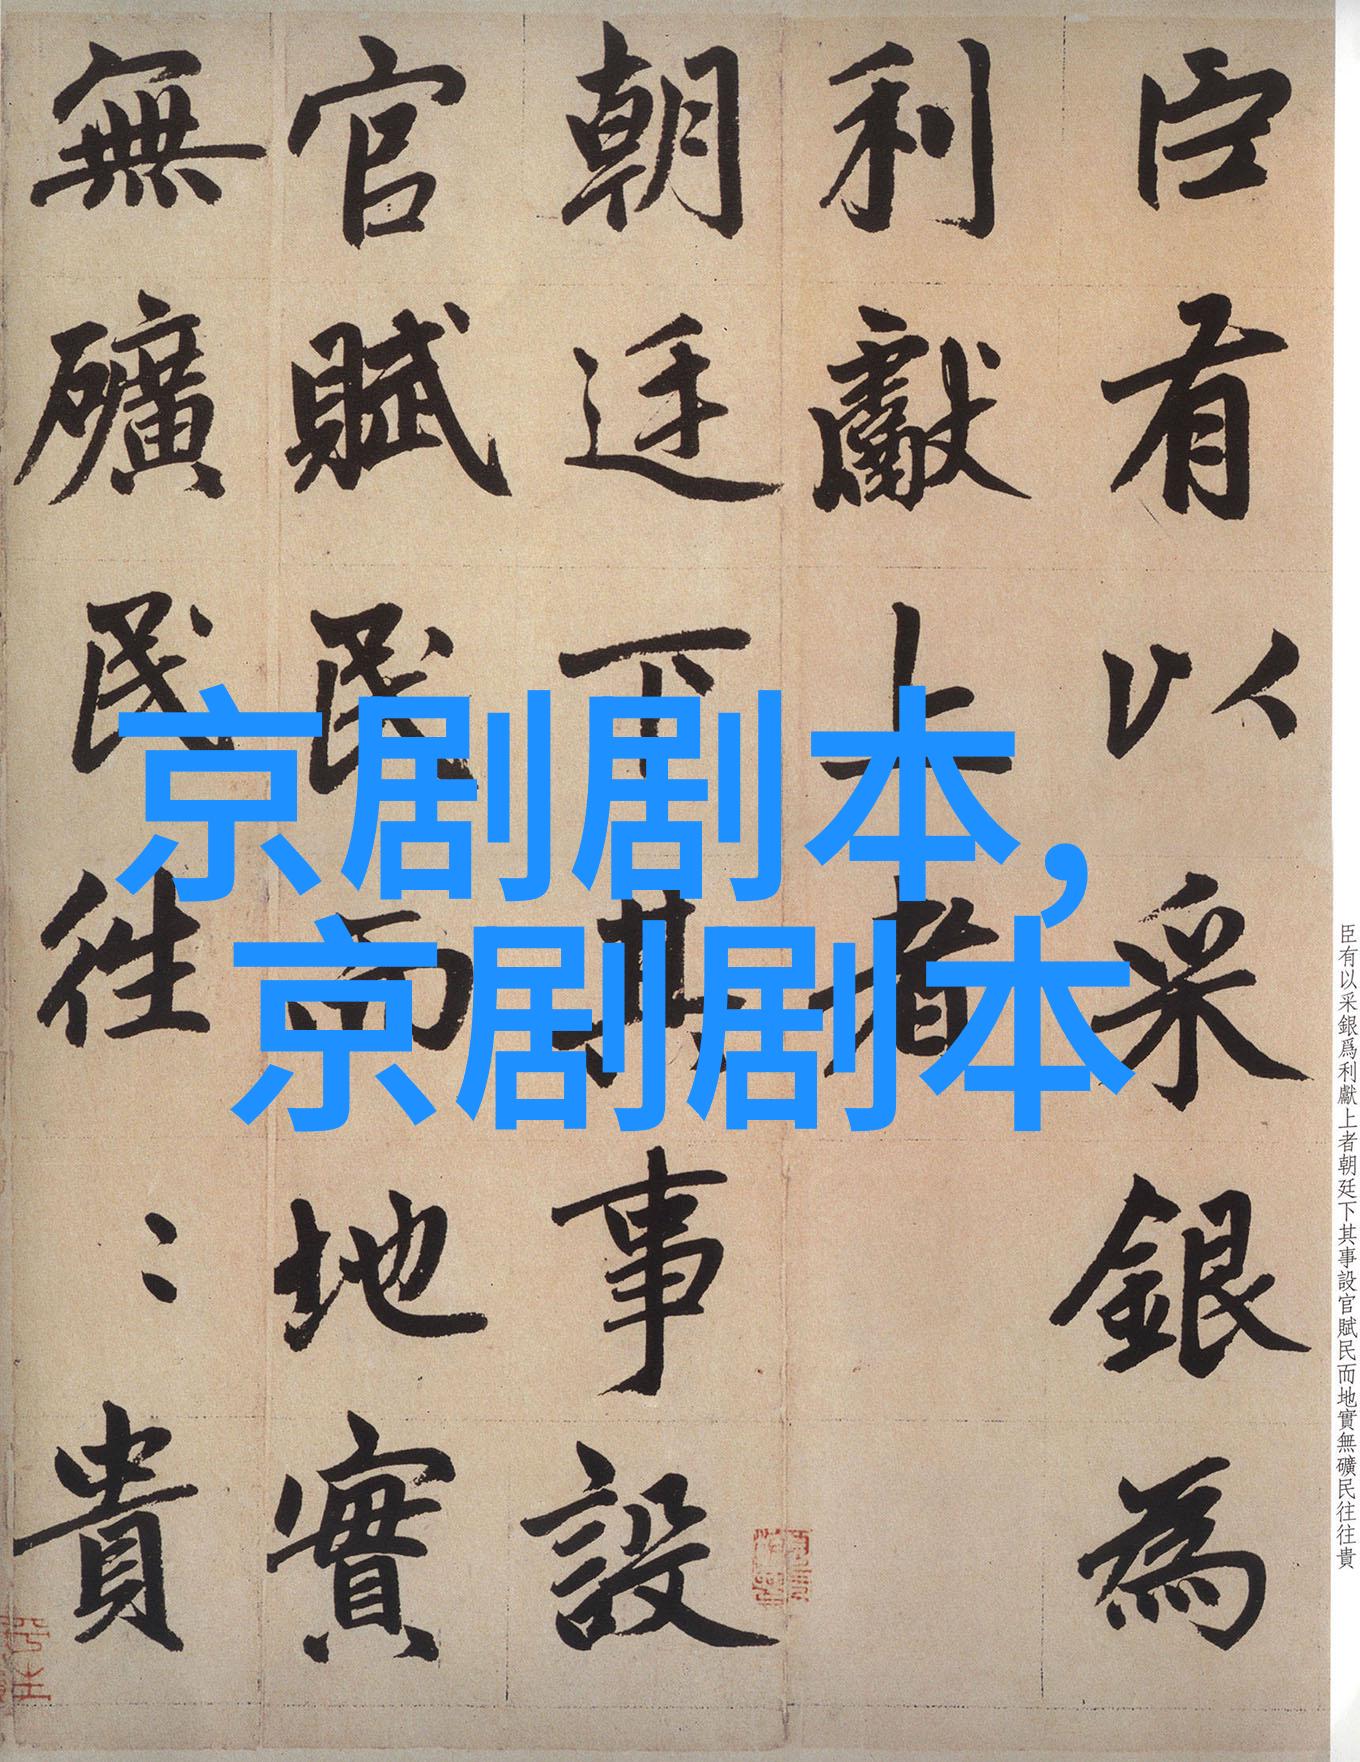 臣有以采銀為
利獻上者
朝廷下其事設
官賦民而地實
無礦民往〻貴
京剧剧本，
京剧剧本
臣有以采銀爲利獻上者朝廷下其事設官賦民而地實無礦民往往貴